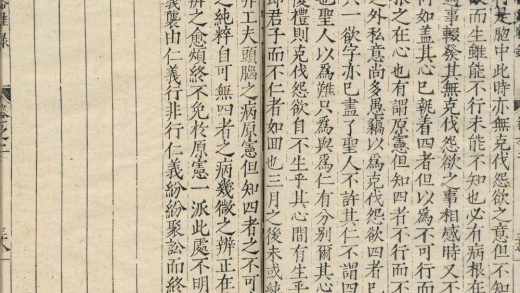 行是胸中此時亦無克伐怨欲之意但不
故而生雖能不行未能不知也必有病根在
遇事輟發其無克伐怨欲之事相感時又不
何如蓋其心已執着四者但以為不可行而
根之在心也有謂原憲但知四者不行而不
之外私意尚多愚竊以為克伐怨欲四者已
只一欲字亦已盡了聖人不許其仁不謂四
也聖人以為難只為與仁有分別爾其心
復禮則克伐怨欲自不生乎其心間有生乎
即君子而不仁者如囬也三月之後未或純
非工夫頭腦之病原憲但知四者之不可
之純粹自可無四者之病幾微之辨正在
辨之愈煩終不免於原憲一派此處不明
義襲由仁義行非行仁義紛紛聚訟而終